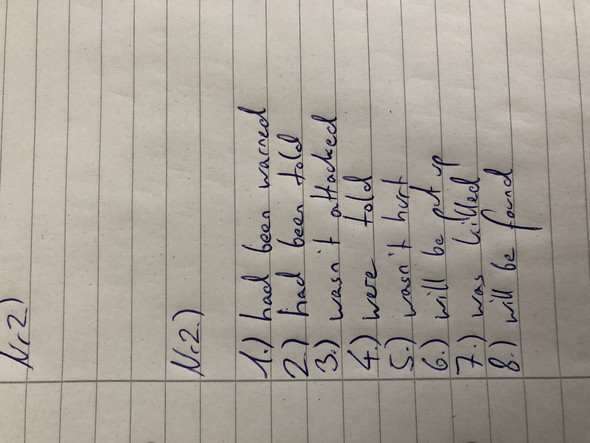 Nr.2)
Nr.2.)
1.) had been warned
2.) had been told
3.) wasn't attacked
4.) were told
5.) wasn't hurt
6.) will be put up
7.) was killed
8.) will be found